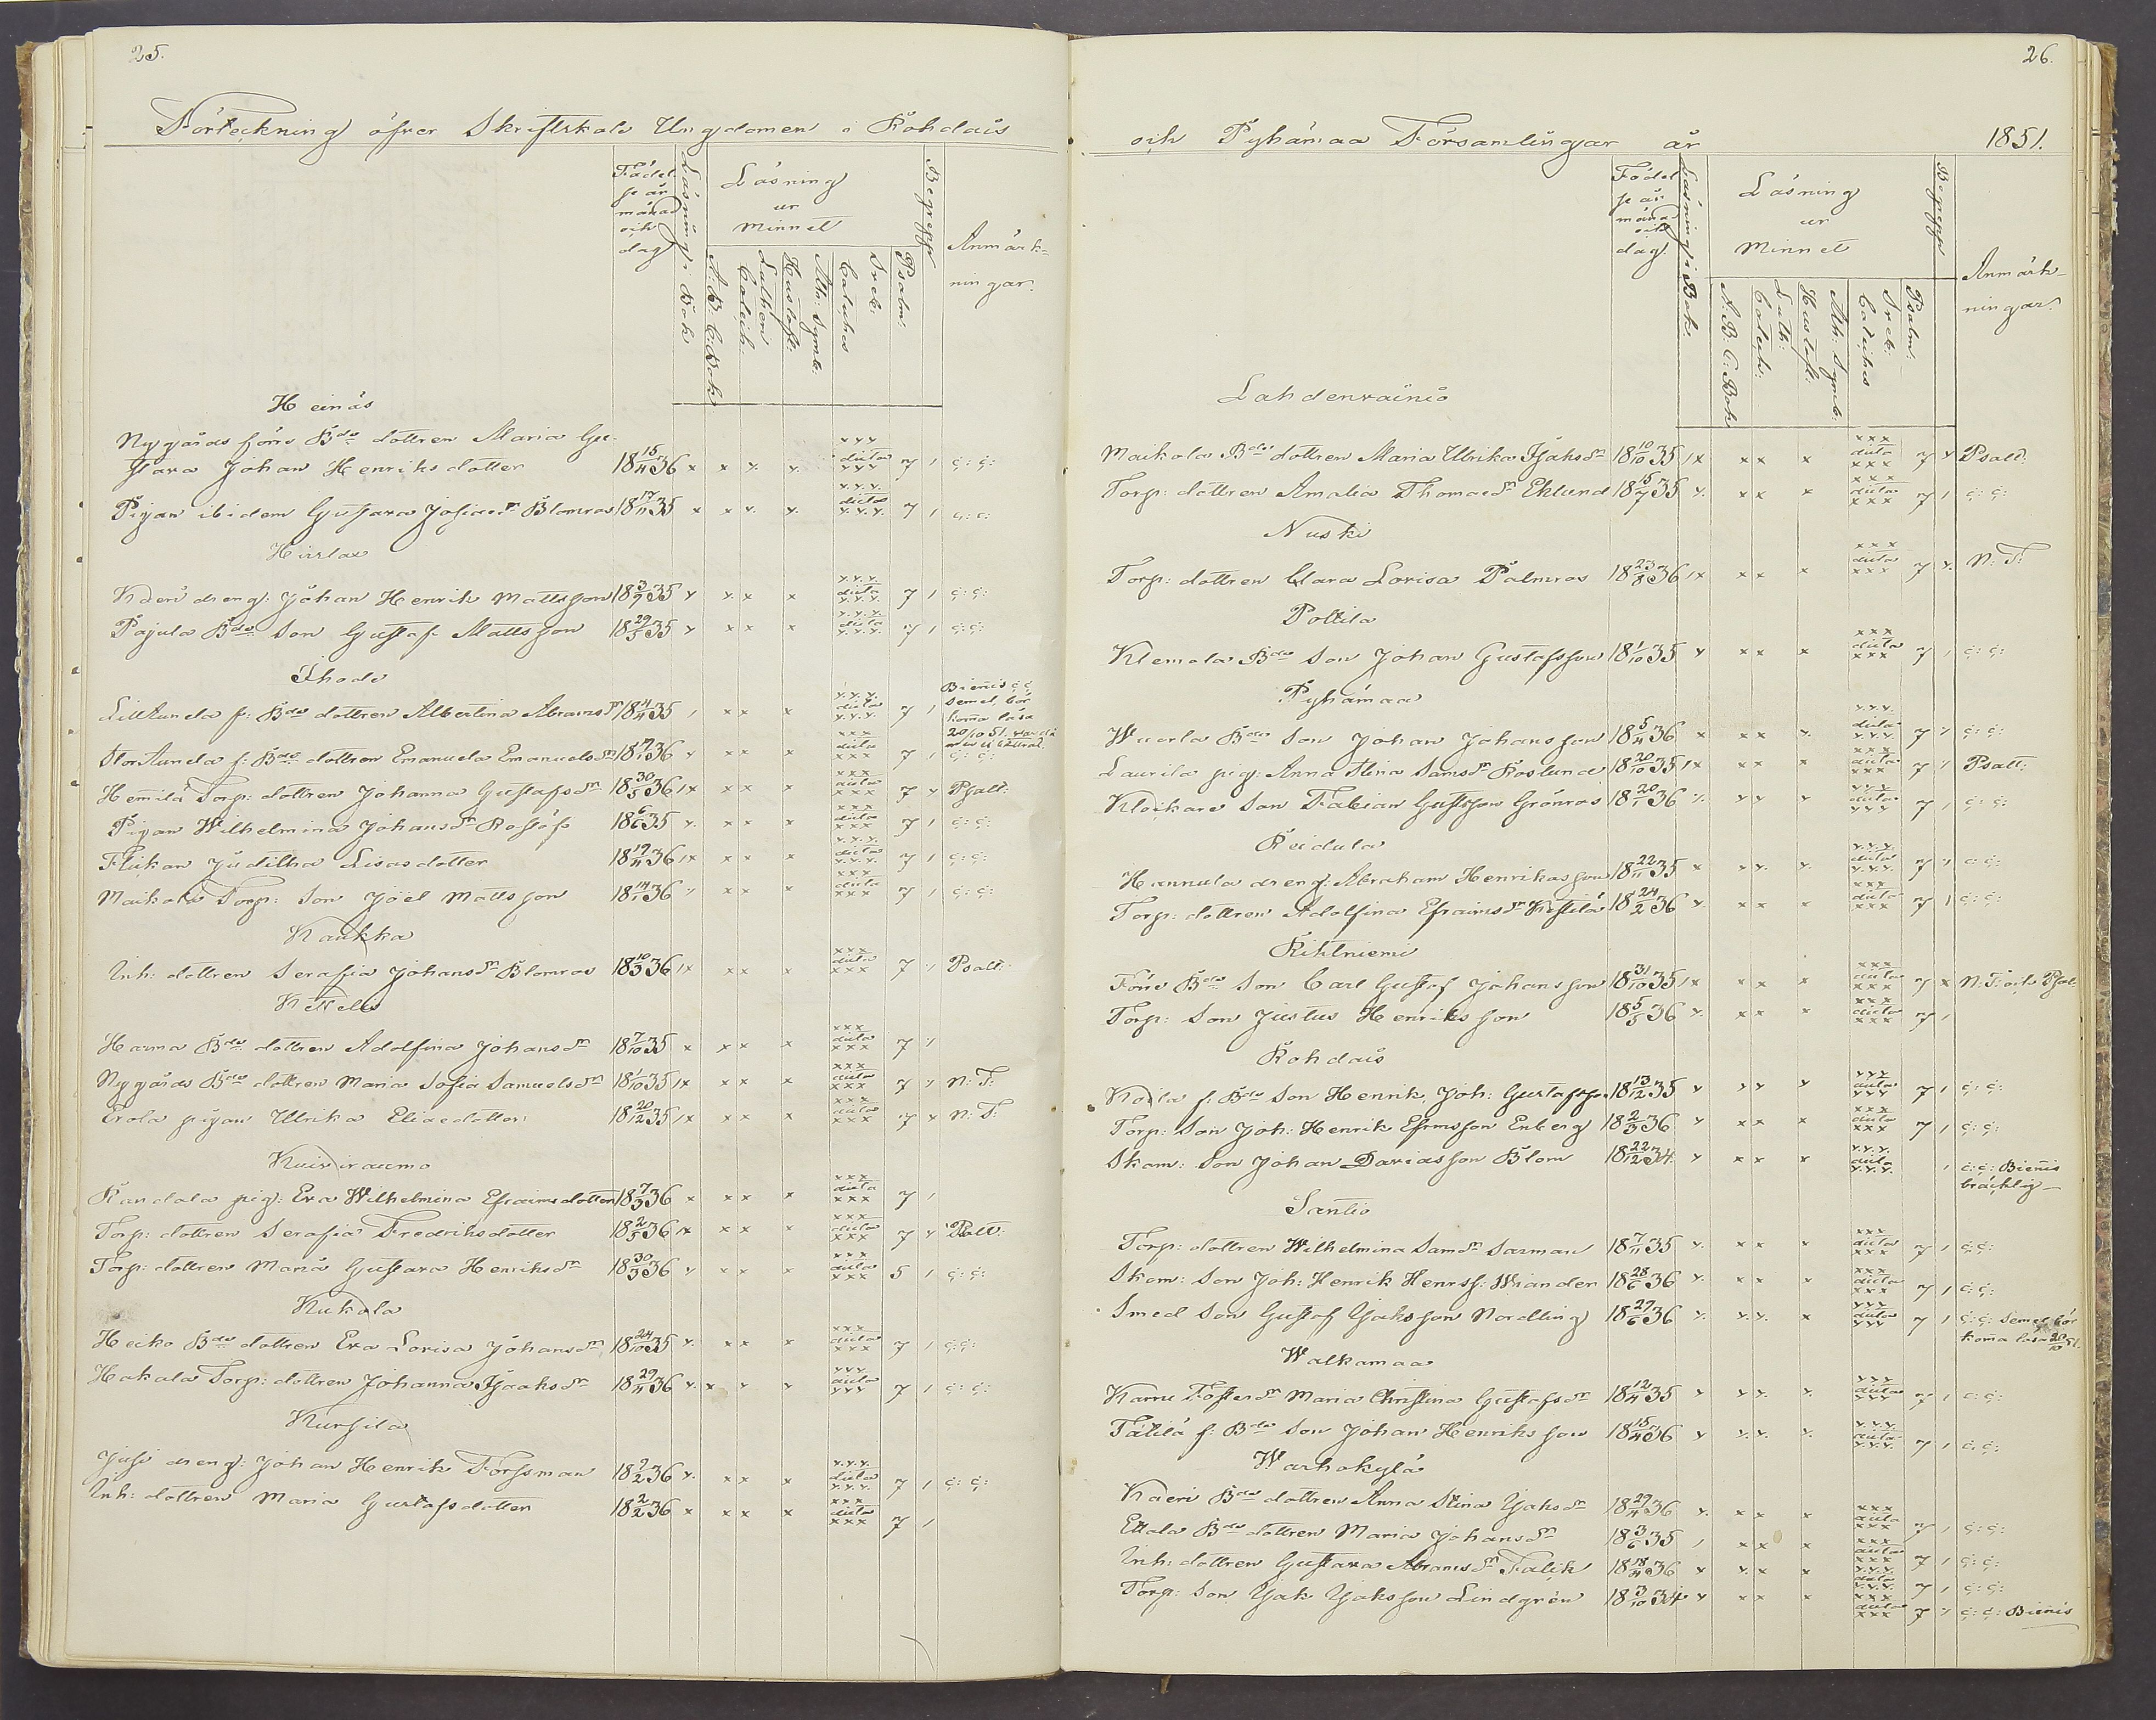 25.
Förteckning öfver Skriftskole Ungdomen i Rohdais
Födel
se år
månad
och
dag
Läsning i Bok
Läsning
ur
Minnet
A. B. C. Bok
Lutheri
Catech:
Hustafl:
Ath: Symb:
Catiches
Sveb:
Psalm:
Begrepp
Anmärk=
ningar.
Heinäs
Nygårds förre Bde dottren Maria Gu-
stava Johan Henriks dotter 18 15/11 36 x x x. x. xxx dicta xxx 7 1 c: c:
Pigan ibidem Gustava Josiaedr Blomroos 18 17/11 35 x x x. x. x.x.x. dicta x.x.x. 7 1 c: c:
Hirslax
Kaeri dreng: Johan Henrik Mattsson 18 3/7 35 x x.x x x.x.x. dicta x.x.x. 7 1 c: c:
Pajula Bde Son Gustaf Mattsson 18 29/5 35 x x x x x.x.x. dicta x.x.x. 7 1 c: c:
Ihode
Lill Aunela f: Bde dottren Albertina Abramsdr 18 4/4 35 1 x x x x.x.x. dicta x.x.x. 7 1 Bienis c: c: semel, bör koma läsa 20/10 51.
Stor Aunela f: Bde dottren Emanuela Emanuelsdr 18 17/1 36 x x x x xxx dicta xxx 7 1 c: c:
Hemilä Torp: dottren Johanna Gustafsdr 18 30/5 36 1x x x x xxx dicta xxx 7 x Psalt:
Pigan Wilhelmina Johansdr Roslöf 18 6/6 35 x. x x x xxx dicta xxx 7 1 c: c:
Flickan Juditha Lisasdotter 18 19/4 36 1x x x x x.x.x. dicta x.x.x. 7 1 c: c:
Maikola Torp: Son Joel Mattsson 18 14/1 36 x x x x xxx dicta xxx 7 1 c: c:
Kaukka
Inh: dottren Serafia Johansdr Blomroos 18 10/3 36 1x x x x xxx dicta xxx 7 x Psalt:
Kettelis
Harma Bde dottren Adolfina Johansdr 18 7/10 35 x x x x xxx dicta xxx 7 x
Nygårds Bde dottren Maria Sofia Samuelsdr 18 1/10 35 1x x x x xxx dicta xxx 7 x N: T:
Erola pigan Ulrika Eliaedotter 18 20/12 35 1x x x x xxx dicta xxx 7 x N: T:
Kuiviraumo
Kandola pig: Eva Wilhelmina Efraimsdotter 18 7/3 36 x x x x xxx dicta xxx 7 1
Torp: dottren Serafia Fredriksdotter 18 2/5 36 1x x x x xxx dicta xxx 7 x Psalt:
Torp: dottren Maria Gustava Henriksdr 18 30/3 36 x x x x xxx dicta xxx 5 1 c: c:
Kukola
Heiko Bde dottren Eva Lovisa Johansdr 18 24/10 35 x. x x x xxx dicta xxx 7 1 c: c:
Hakala Torp: dottren Johanna Isaaksdr 18 29/4 36 x. x x x xxx dicta xxx 7 1 c: c:
Kursila
Jusi dreng: Johan Henrik Forssman 18 7/2 36 x. x x x x.x.x. dicta x.x.x. 7 1 c: c:
Inh: dottren Maria Gustafsdotter 18 2/2 36 x x x x xxx dicta xxx 7 1
26.
och Pyhämaa Församlingar år 1851.
Födel
se år
månad
och
dag.
Läsning i Bok
Läsning
ur
Minnet
A. B. C. Bok
Catech:
Luth:
Hustafl:
Ath: Symb:
Catiches
Sveb:
Psalm:
Begrepp
Anmärk-
ningar.
Lahdenvainio
Maikola Bde dottren Maria Ulrika Isaksdr 18 10/10 35 1x x x x xxx dicta xxx 7 x Psalt:
Torp: dottren Amalia Thomaedr Eklund 18 15/7 35 x. x x x xxx dicta xxx 7 1 c: c:
Nuski
Torp: dottren Clara Lovisa Palmroos 18 23/8 36 1x x x x xxx dicta xxx 7 x. N: T:
Pottila
Klemola Bde Son Johan Gustafsson 18 1/10 35 x x x x xxx dicta xxx 7 1 c: c:
Pyhämaa
Wuorla Bde Son Johan Johansson 18 5/4 36 x x x x. x.x.x. dicta x.x.x. 7 x c: c:
Laurila pig: Anna Stina Samsdr Roslund 18 20/10 35 1x x x x xxx dicta xxx 7 x Psalt:
Klockare Son Fabian Gustsson Grönroos 18 20/1 36 x. x x x xxx dicta xxx 7 1 c: c:
Reidula
Hannula dreng: Abraham Henriksson 18 22/11 35 x x x. x. x.x.x. dicta x.x.x. 7 x c: c:
Torp: dottren Adolfina Efraimsdr Kestilä 18 24/2 36 x. x x x xxx dicta xxx 7 1 c: c:
Rihtniemi
Före Bde Son Carl Gustaf Johansson 18 31/10 35 1x x x x xxx dicta xxx 7 x N: T: och Psal:
Torp: Son Justus Henriksson 18 5/5 36 x. x x x xxx dicta xxx 7 1
Rohdais
Kodla f: Bde Son Henrik, Joh: Gustafsson 18 13/12 35 x x x x xxx dicta xxx 7 1 c: c:
Torp: Son Joh: Henrik Efrmsson Enberg 18 2/3 36 x x x x xxx dicta xxx 7 1 c: c:
Skom: Son Johan Davidsson Blom 18 22/12 34. x x x x x.x.x. dicta x.x.x. 1 c: c: Bienis
bräcklig—
Santio
Torp: dottren Wilhelmina Samdr Sarman 18 7/11 35 x. x x x xxx dicta xxx 7 1 c: c:
Skom: Son Joh: Henrik Henrss: Wiander 18 28/6 36 x. x x x xxx dicta xxx 7 1 c: c:
Smed Son Gustaf Isaksson Nordling 18 27/6 36 x. x.x. x xxx dicta xxx 7 1 c: c: Semel bör
koma läsa 20/10 51.
Walkamaa
Karru Fosterdr Maria Christina Gustafsdr 18 12/4 35 x x x. x. xxx dicta xxx 7 1 c: c:
Tätilä f: Bde Son Johan Henriksson 18 15/4 36 x x.x. x. x.x.x. dicta x.x.x. 7 1 c: c:
Warhokylä
Kaeri Bde dottren Anna Stina Isaksdr 18 29/4 36 x. x x x xxx dicta xxx 7 1 c: c:
Ettala Bde dottren Maria Johansdr 18 3/6 35 1 x x x xxx dicta xxx 7 1 c: c:
Inh: dottren Gustava Abramsdr Falck 18 18/4 36 x x. x x x.x.x. dicta x.x.x. 7 1 c: c:
Torp: Son Isak Isaksson Lindgrén 18 3/10 34 x x x x xxx dicta xxx 7 x c: c: Bienis